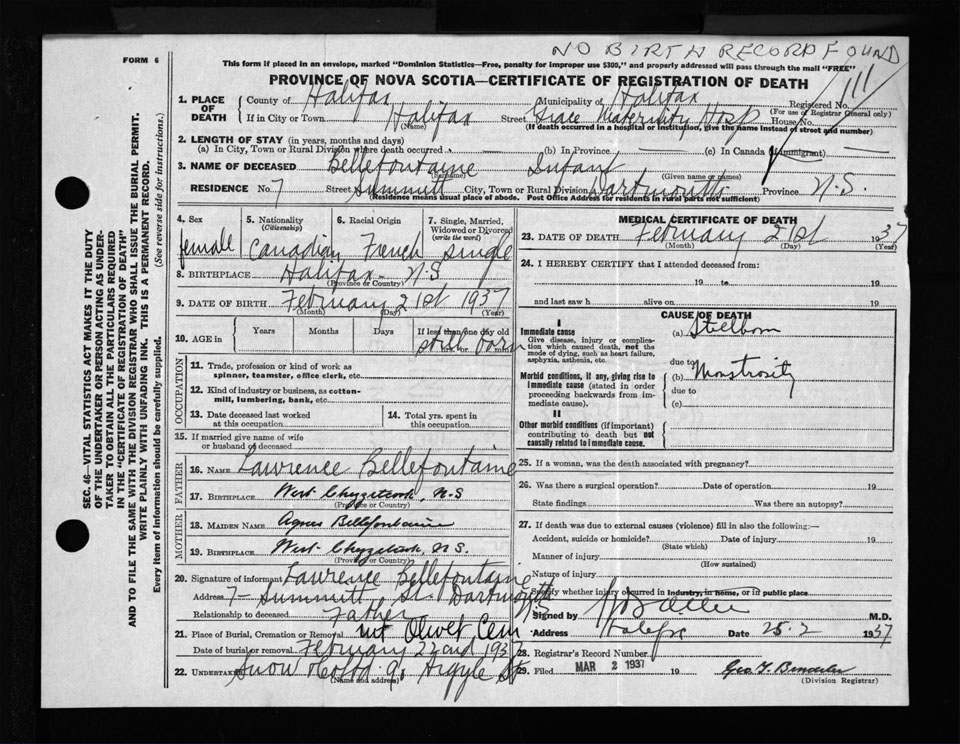 NO BIRTH RECORD FOUND
FORM 6
This form if placed in an envelope, marked "Dominion Statistics—Free, penalty for improper use $300," and properly addressed will pass through the mail "FREE"
PROVINCE OF NOVA SCOTIA—CERTIFICATE OF REGISTRATION OF DEATH
1. PLACE OF DEATH
County of Halifax Municipality of Halifax Registered No.
(For use of Registrar General only)
If in City or Town Halifax Street Grace Maternity Hosp House No.
(Name) (If death occurred in a hospital or institution, give the name instead of street and number)
2. LENGTH OF STAY (in years, months and days)
(a) In City, Town or Rural Division where death occurred — (b) In Province — (c) In Canada (if immigrant) —
3. NAME OF DECEASED Bellefontaine Infant
(Surname) (Given name or names)
RESIDENCE No. 7 Street Summitt City, Town or Rural Division Dartmouth Province N.S.
(Residence means usual place of abode. Post Office Address for residents in rural parts not sufficient)
4. Sex
female
5. Nationality
(Citizenship)
Canadian
6. Racial Origin
French
7. Single, Married, Widowed or Divorced
(write the word)
single
8. BIRTHPLACE Halifax N.S
(Province or Country)
9. DATE OF BIRTH February 21st 1937
(Month) (Day) (Year)
10. AGE in
Years Months Days If less than one day old
still born
hrs. or min.
OCCUPATION
11. Trade, profession or kind of work as
spinner, teamster, office clerk, etc.
12. Kind of industry or business, as cotton-
mill, lumbering, bank, etc.
13. Date deceased last worked
at this occupation
14. Total yrs. spent in
this occupation
15. If married give name of wife
or husband of deceased
FATHER
16. NAME Lawrence Bellefontaine
17. BIRTHPLACE West Chezzetcook, N.S
(Province or Country)
MOTHER
18. MAIDEN NAME Agnes Bellefontaine
19. BIRTHPLACE West Chezzetcook, N.S.
(Province or Country)
20. Signature of informant Lawrence Bellefontaine
Address 7- Summitt St. Dartmouth N.S
Relationship to deceased Father
21. Place of Burial, Cremation or Removal Mt Olivet Cem
Date of burial or removal February 22nd 1937
22. UNDERTAKER Snow & Co Ltd 90 Argyle St
(Name and address)
MEDICAL CERTIFICATE OF DEATH
23. DATE OF DEATH February 21st 1937
(Month) (Day) (Year)
24. I HEREBY CERTIFY that I attended deceased from:
19 to 19
and last saw h alive on 19
CAUSE OF DEATH
I
Immediate cause
Give disease, injury or complication which caused death, not the mode of dying, such as heart failure, asphyxia, asthenia, etc.
(a) Stillborn
due to
Morbid conditions, if any, giving rise to immediate cause (stated in order proceeding backwards from immediate cause).
(b) Monstrosity
due to
(c)
II
Other morbid conditions (if important) contributing to death but not causally related to immediate cause.
25. If a woman, was the death associated with pregnancy?
26. Was there a surgical operation? Date of operation 19
State findings Was there an autopsy?
27. If death was due to external causes (violence) fill in also the following:—
Accident, suicide or homicide? Date of injury 19
(State which)
Manner of injury
(How sustained)
Nature of injury
Specify whether injury occurred in industry, in home, or in public place
Signed by M.D.
Address Halifax Date 25-2 1937
28. Registrar's Record Number
29. Filed MAR 2 1937 19
(Division Registrar)
SEC. 46—VITAL STATISTICS ACT MAKES IT THE DUTY
OF THE UNDERTAKER OR PERSON ACTING AS UNDER-
TAKER TO OBTAIN ALL THE PARTICULARS REQUIRED
IN THE "CERTIFICATE OF REGISTRATION OF DEATH"
AND TO FILE THE SAME WITH THE DIVISION REGISTRAR WHO SHALL ISSUE THE BURIAL PERMIT.
WRITE PLAINLY WITH UNFADING INK. THIS IS A PERMANENT RECORD.
Every item of Information should be carefully supplied. (See reverse side for instructions.)